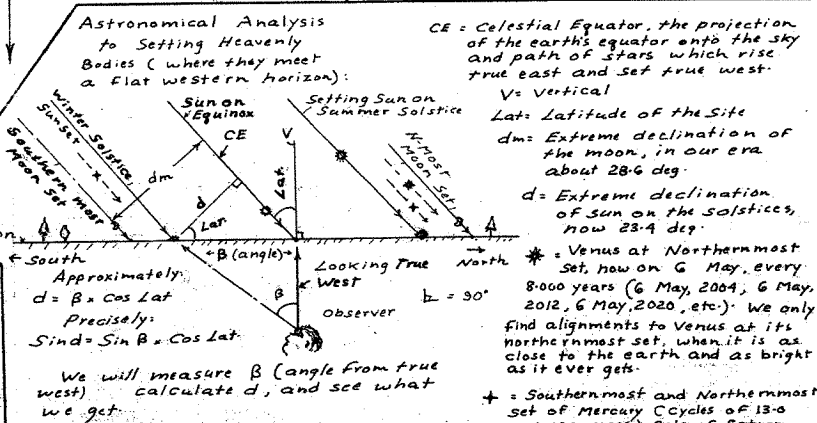 Astronomical Analysis
to Setting Heavenly
Bodies (where they meet
a flat western horizon):
Winter Solstice
Sunset
Southern most
Moon Set
dm
Sun on
Equinox
CE
V
Lat.
d
Lat.
Setting Sun on
Summer Solstice
N-Most
Moon Set
← South
←β (angle)→
→
North
Looking True
West
β
Observer
= 90°
Approximately:
d = β × Cos Lat
Precisely:
Sin d = Sin β × Cos Lat
We will measure β (angle from true
west) calculate d, and see what
we get.
CE = Celestial Equator, the projection
of the earth's equator onto the sky
and path of stars which rise
true east and set true west.
V = Vertical
Lat = Latitude of the Site
dm = Extreme declination of
the moon, in our era
about 28.6 deg.
d = Extreme declination
of sun on the solstices,
now 23.4 deg.
= Venus at Northernmost
Set, now on 6 May, every
8.000 years (6 May, 2004, 6 May,
2012, 6 May, 2020, etc.). We only
find alignments to Venus at its
northernmost set, when it is as
close to the earth and as bright
as it ever gets.
+ = Southernmost and Northernmost
set of Mercury (Cycles of 13.0